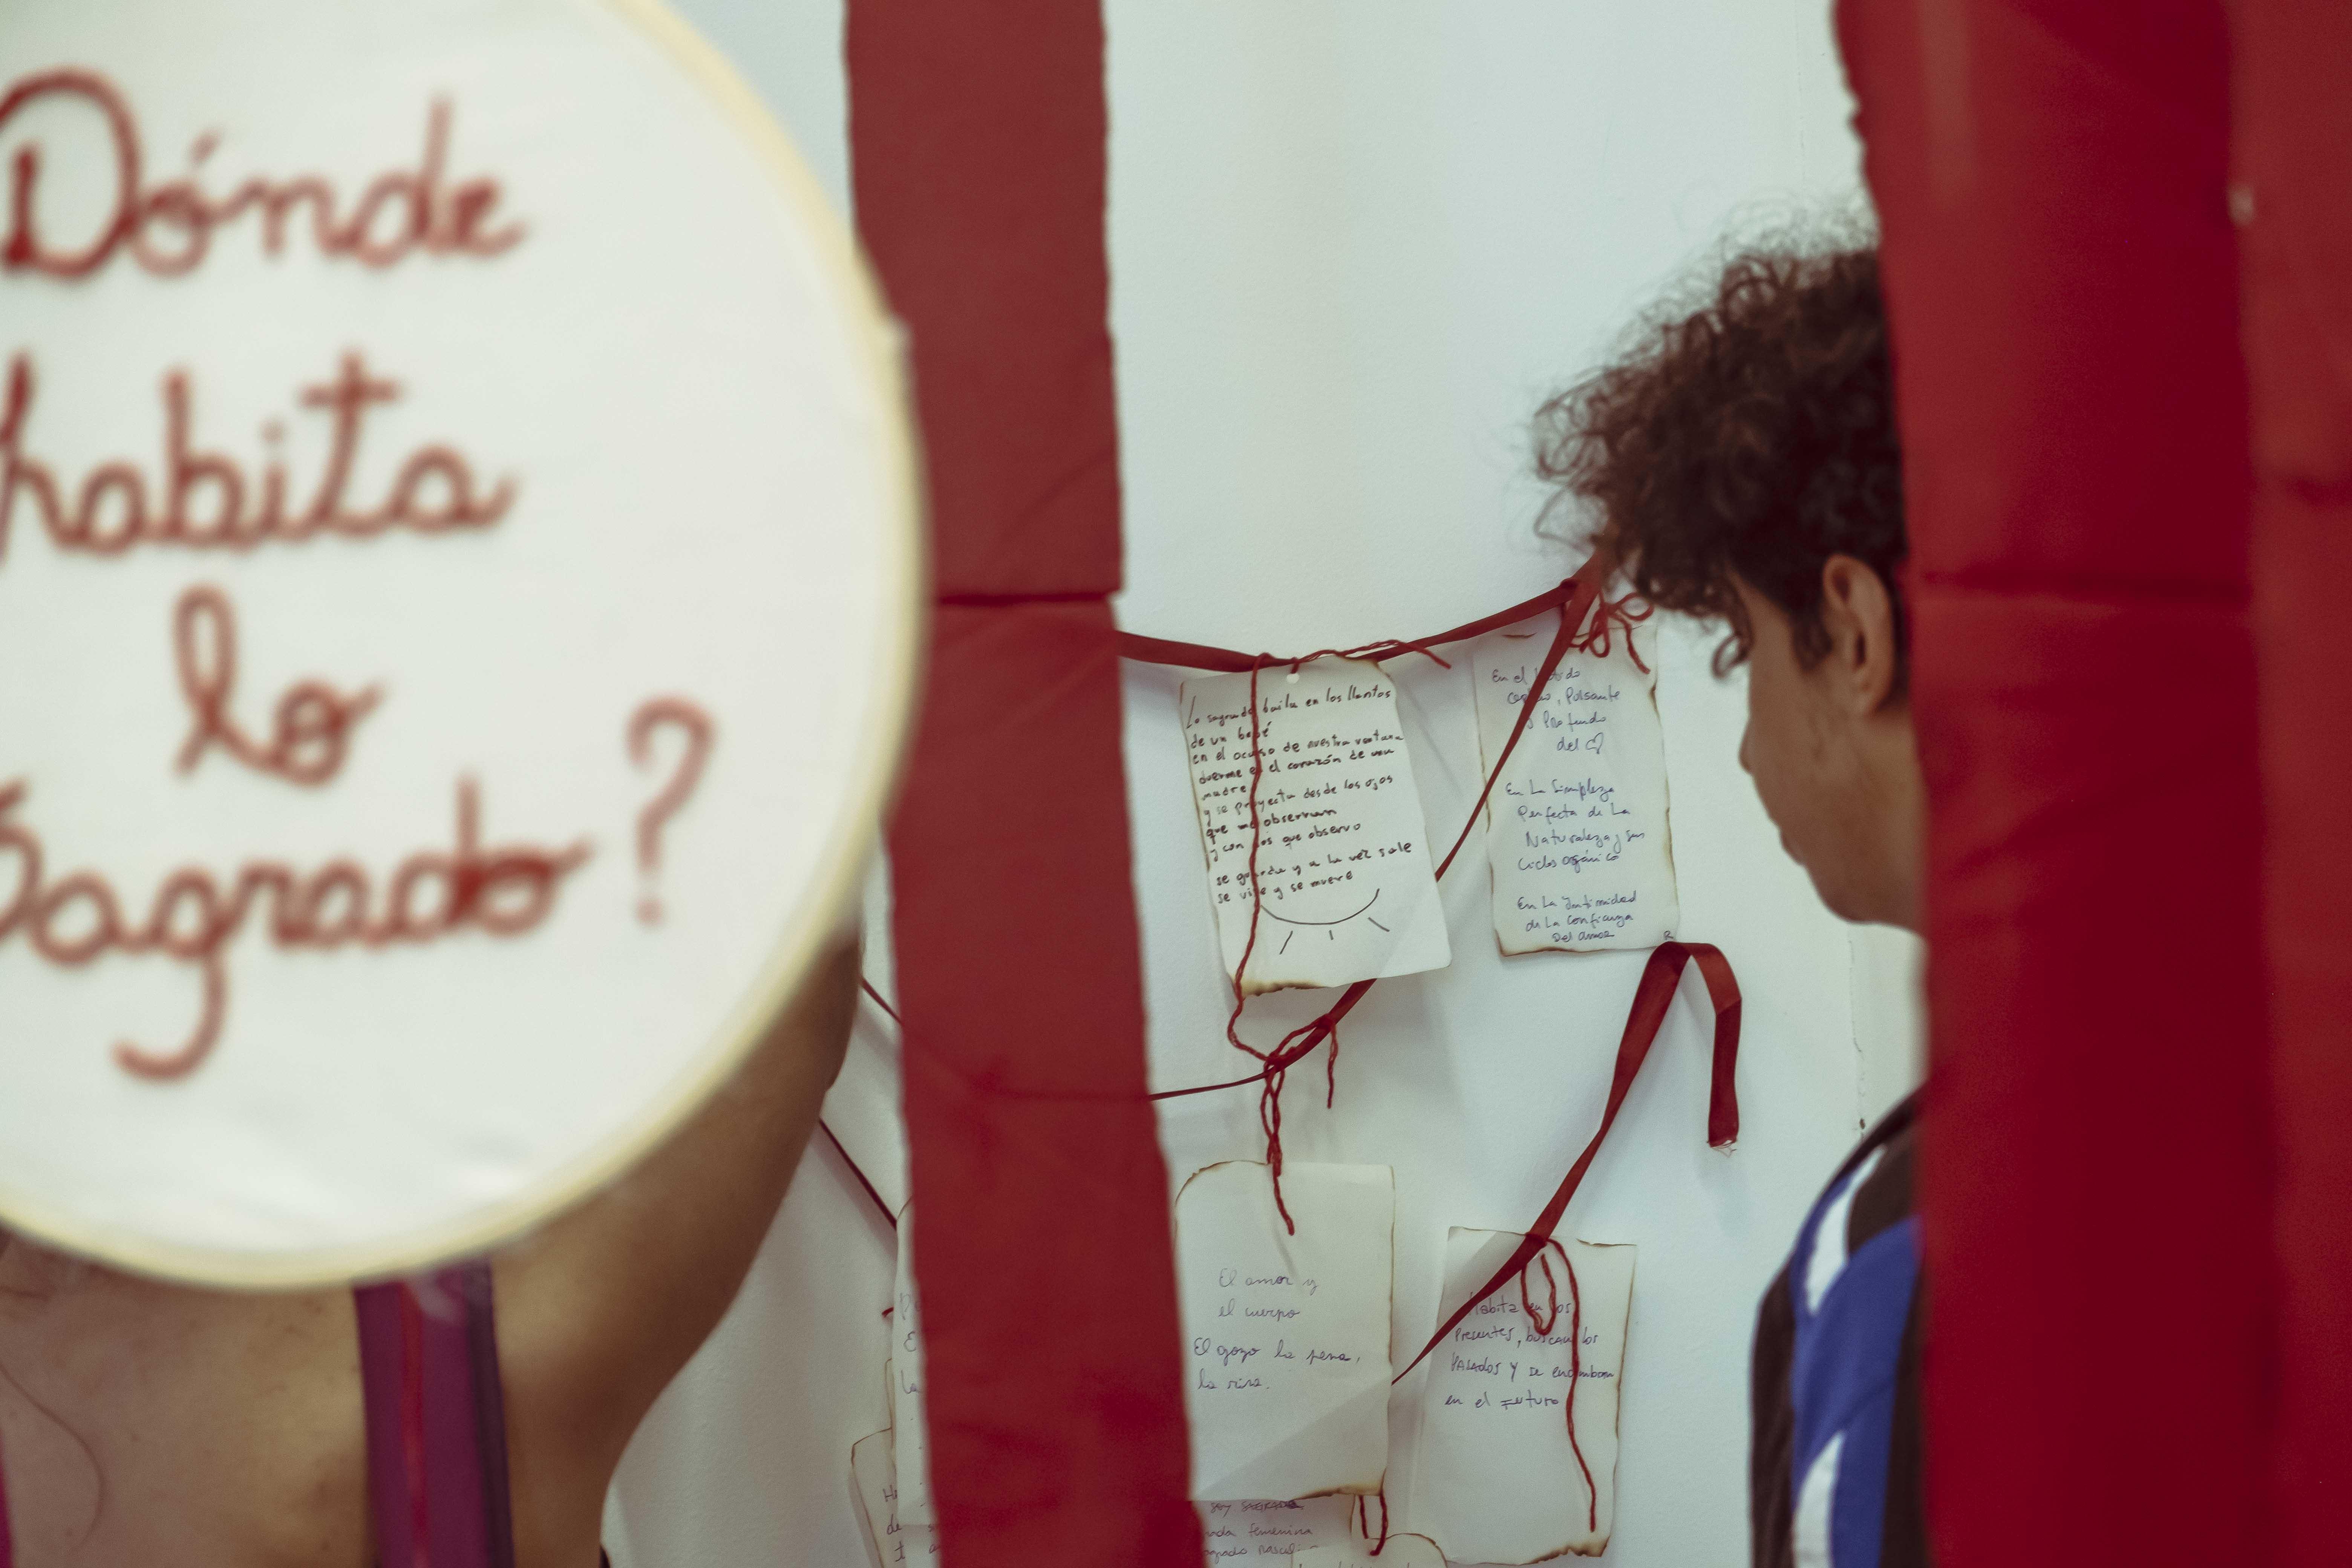 Dónde
habita
lo
Sagrado?
Lo sagrado baila en los llantos
de un bebé
en el ocaso de nuestra ventana
duerme en el corazón de una
madre
y se proyecta desde los ojos
que me observan
y con los que observo
se guarda y a la vez sale
se vive y se muere
En el
, Pulsante
y Profundo
del
En La Simpleza
Perfecta de La
Naturaleza y sus
Ciclos orgánico
En La Intimidad
de La confianza
Del amor
R
El amor y
el cuerpo
El gozo la pena,
la risa.
Habita en los
Presentes, buscan los
PASADOS Y se encumbran
en el Futuro
La
He
de
SOY SAGRADA
femenina